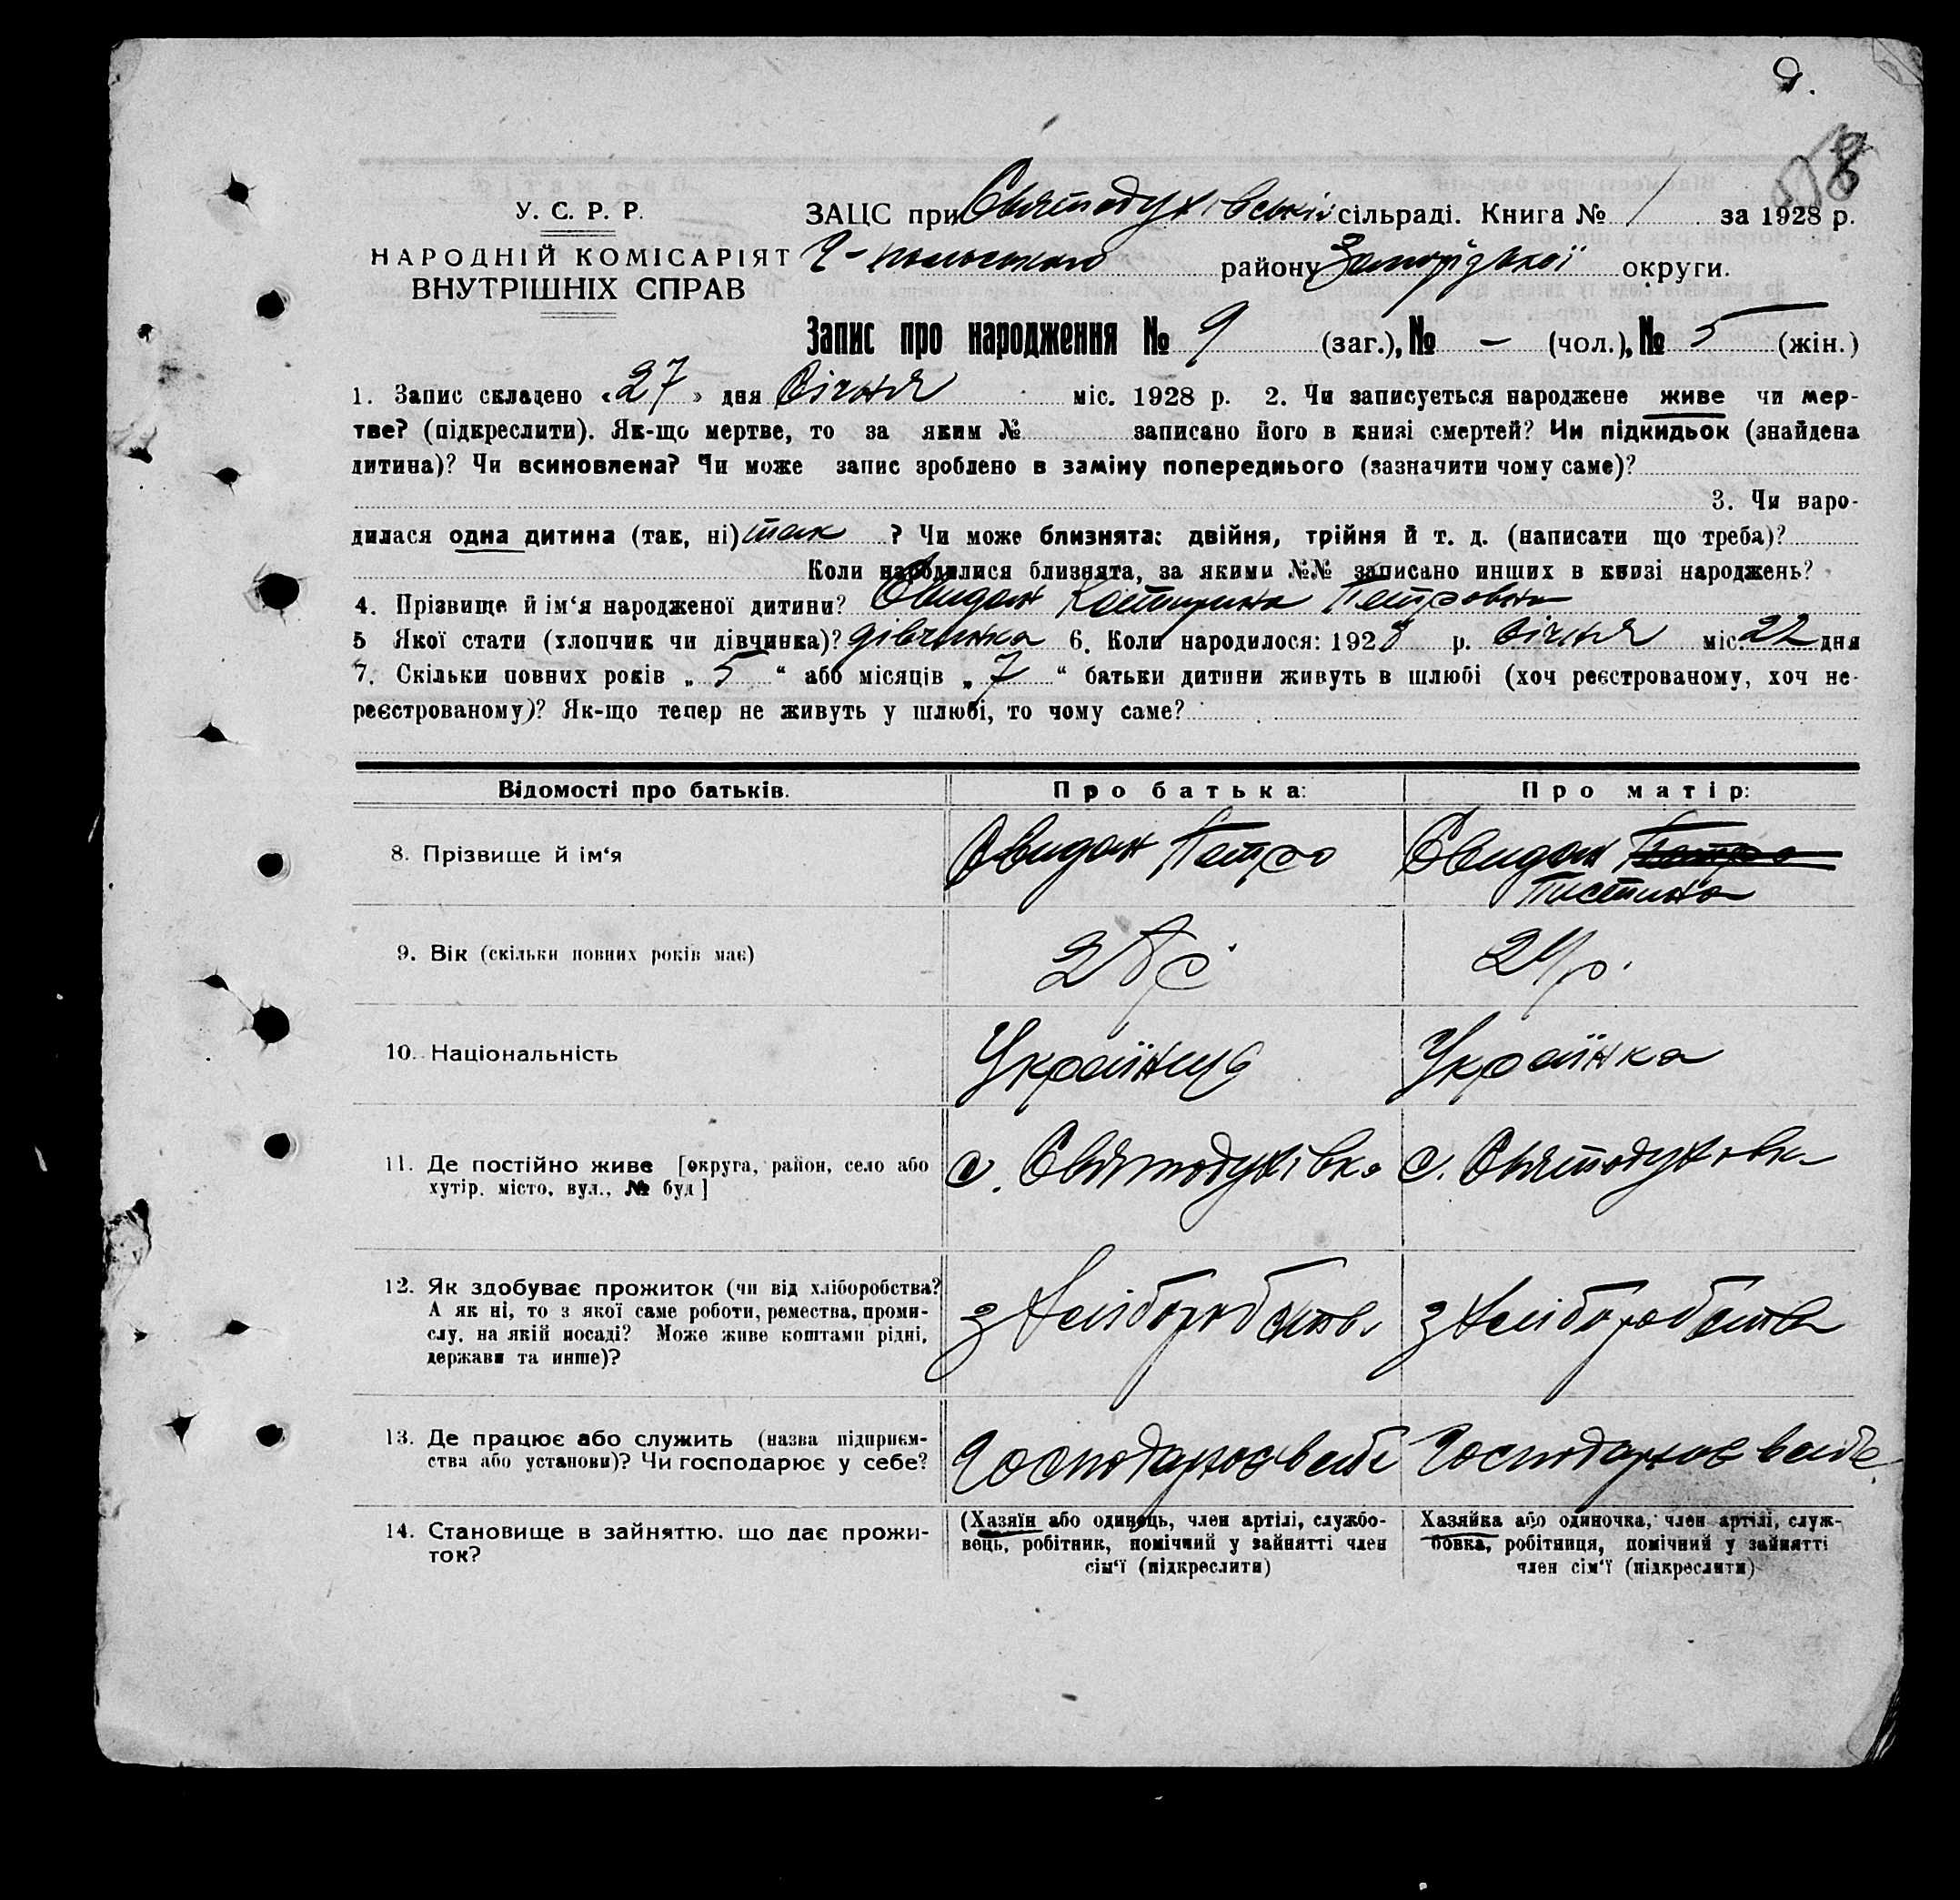 9.
58
У. С. Р. Р.
НАРОДНІЙ КОМІСАРІЯТ
ВНУТРІШНІХ СПРАВ
ЗАЦС при Святодухівській сільраді. Книга № 1 за 1928 р.
району Запорізької округи.
Запис про народження № 9 (заг.), № – (чол.), № 5 (жін.)
1. Запис складено «27» дня Січня міс. 1928 р. 2. Чи записується народжене живе чи мер-
тве? (підкреслити). Як-що мертве, то за яким № записано його в книзі смертей? Чи підкидьок (знайдена
дитина)? Чи всиновлена? Чи може запис зроблено в заміну попереднього (зазначити чому саме)?
3. Чи наро-
дилася одна дитина (так, ні) так ? Чи може близнята: двійня, трійня й т. д. (написати що треба)?
Коли народилися близнята, за якими №№ записано инших в книзі народжень?
4. Прізвище й ім‘я народженої дитини? Свидан Катирина Петровна
5 Якої стати (хлопчик чи дівчинка)? дівчинка 6. Коли народилося: 1928 р. Січня міс. 22 дня
7. Скільки повних років „ 5 “ або місяців „ 7 “ батьки дитини живуть в шлюбі (хоч реєстрованому, хоч не-
реєстрованому)? Як-що тепер не живуть у шлюбі, то чому саме?
Відомості про батьків.
Про батька:
Про матір:
8. Прізвище й ім‘я
Свидан Петро
Свидан Петро
Тистина
9. Вік (скільки повних років має)
24 р.
10. Національність
Українць
Українка
11. Де постійно живе [округа, район, село або
хутір, місто, вул., № буд]
с. Святодухівка
с. Святодуховка
12. Як здобуває прожиток (чи від хліборобства?
А як ні, то з якої саме роботи, ремества, проми-
слу, на якій посаді? Може живе коштами рідні,
держави та инше)?
з хліборобства
з хліборобства
13. Де працює або служить (назва підприєм-
ства або установи)? Чи господарює у себе?
Господарює в себе
Господарює в себе
14. Становище в зайняттю, що дає прожи-
ток?
(Хазяїн або одинець, член артілі, службо-
вець, робітник, помічний у зайнятті член
сім‘ї (підкреслити)
Хазяйка або одиночка, член артілі, служ-
бовка, робітниця, помічний у зайнятті
член сім‘ї (підкреслити)